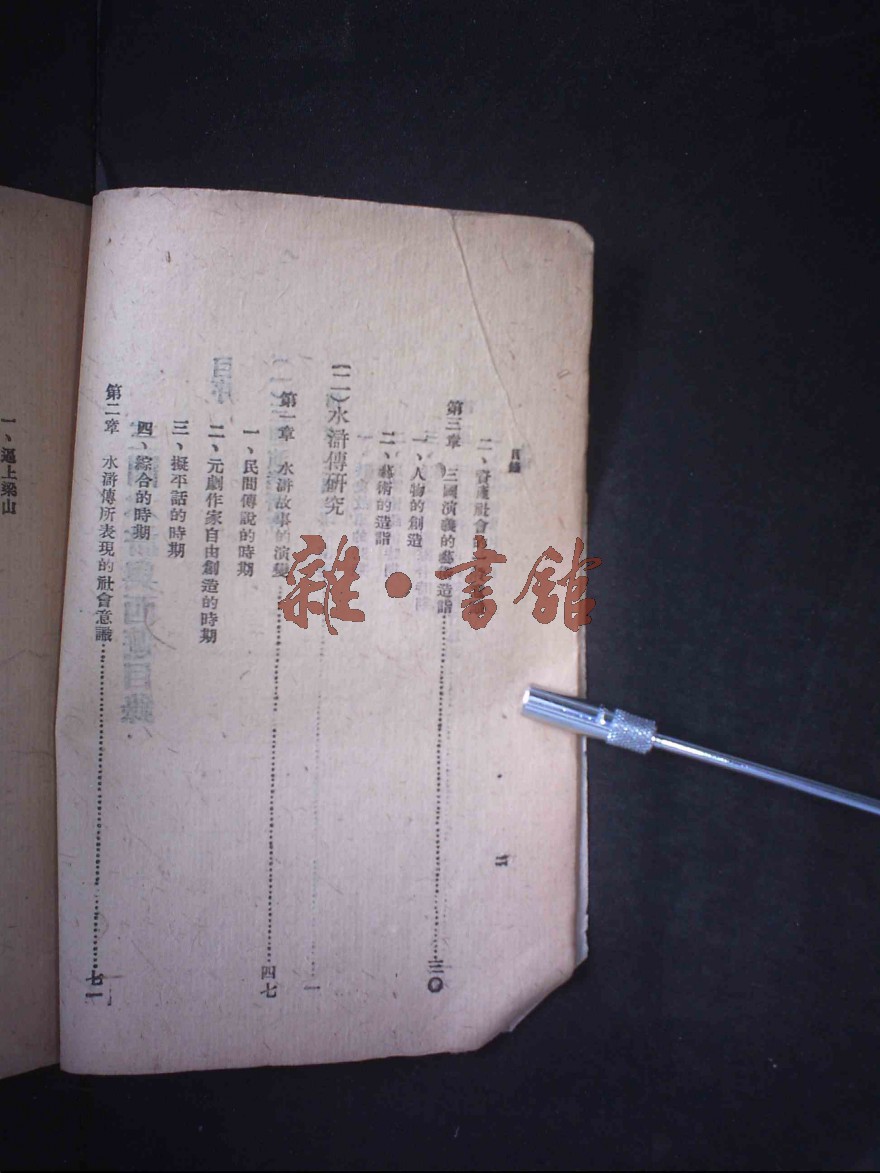 目錄
二
二、資產社會的
第三章 三國演義的藝術造詣……三〇
一、人物的創造
二、藝術的造詣
(二)水滸傳研究
第一章 水滸故事的演變……四七
一、民間傳說的時期
二、元劇作家自由創造的時期
三、擬平話的時期
四、綜合的時期
第二章 水滸傳所表現的社會意識……七一
一、逼上梁山
雜·書館